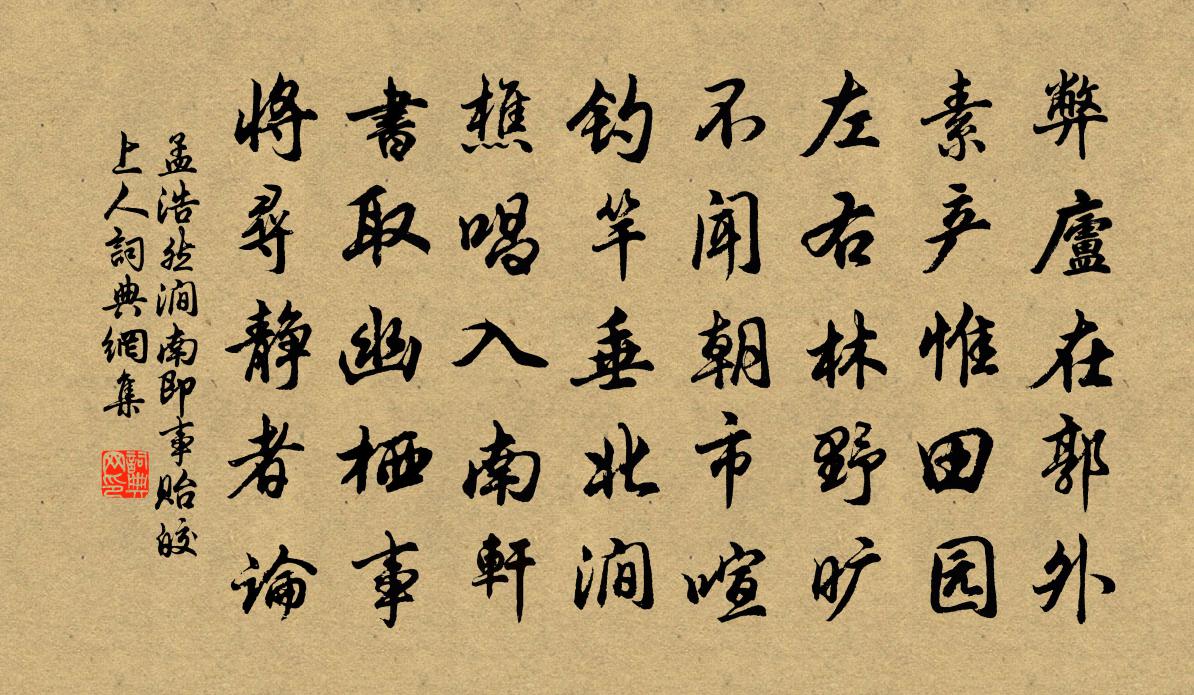 弊廬在郭外
素产惟田园
左右林野旷
不闻朝市喧
钓竿垂北涧
樵唱入南軒
書取幽栖事
将尋静者論
孟浩然涧南即事貽皎
上人詞典網集
詞典
网印